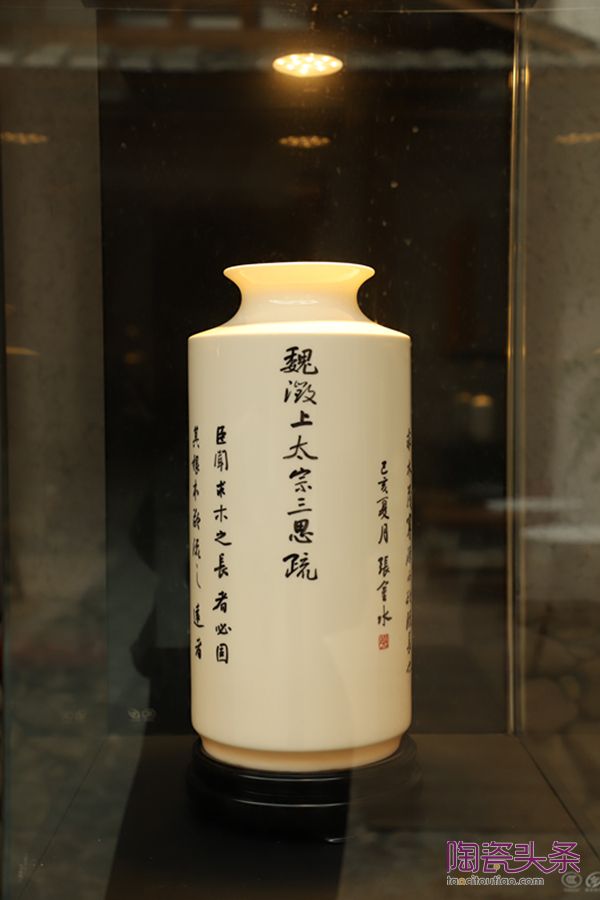 己亥夏月 張金水
魏澂上太宗三思疏
臣聞求木之長者必固
其根本欲流之遠者
陶瓷头条
taocitoutiao.com